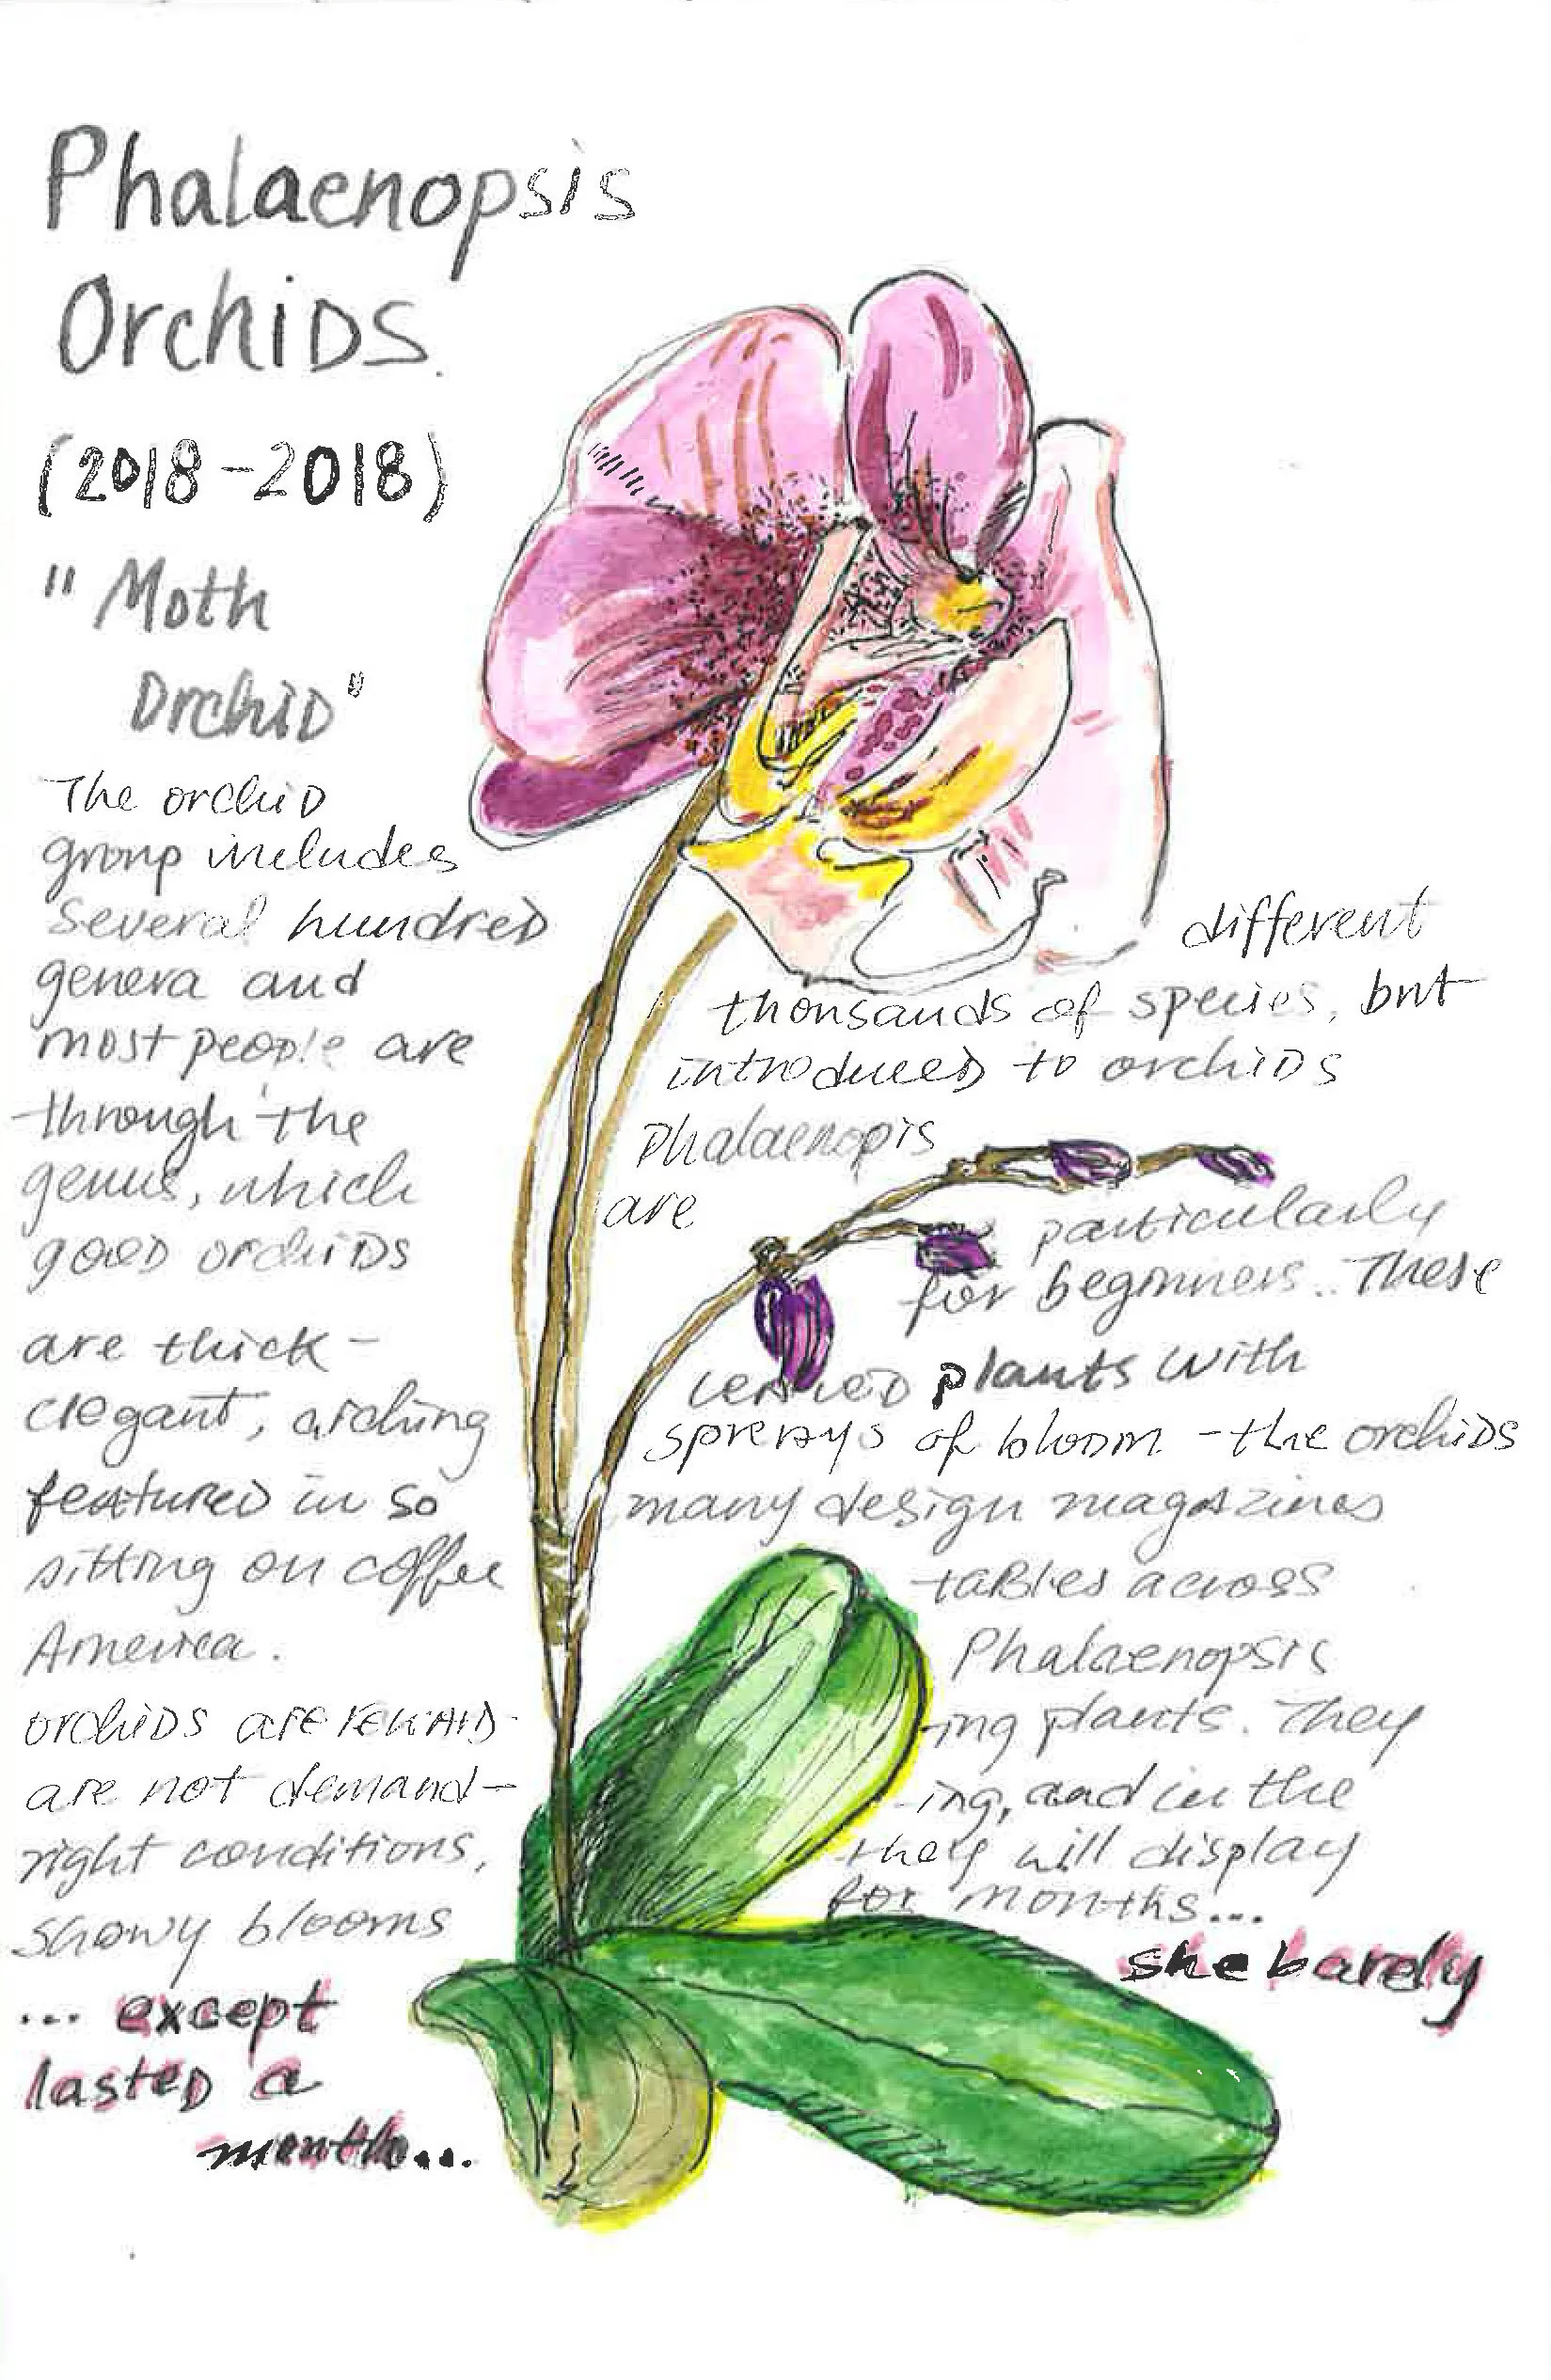 Phalaenopsis
Orchids.
(2018-2018)
"Moth
Orchid"
The orchid
group includes
several hundred different
genera and thousands of species, but
most people are introduced to orchids
through the Phalaenopis
genus, which are particularly
good orchids for beginners.. These
are thick- leaved plants with
elegant, arching sprays of bloom - the orchids
featured in so many design magazines
sitting on coffee tables across
America. Phalaenopsis
orchids are reward- -ing plants. They
are not demand- -ing, and in the
right conditions, they will display
showy blooms for months...
... except she barely
lasted a
month...